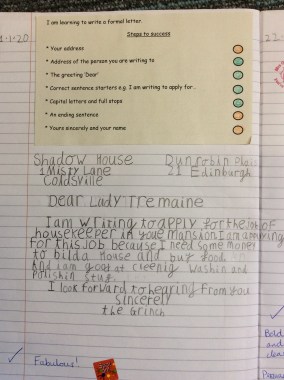 I am learning to write a formal letter.
Steps to success
* Your address
* Address of the person you are writing to
* The greeting 'Dear'
* Correct sentence starters e.g. I am writing to apply for..
* Capital letters and full stops
* An ending sentence
* Yours sincerely and your name
1-1-20
22-
Shadow House Dunrobin
1 Misty Lane 21 Edinburgh
Coldsville
Dear Lady Tremaine
I am writing to apply for the job of
housekeeper in your mansion I am applying
for this job because I need some money
to bild a House and buy food
And i am goot at cleenig Washin and
Polishin stuf.
I look forward to hearing from you
Sincerely
the Grinch
Fabulous!
Bold
and